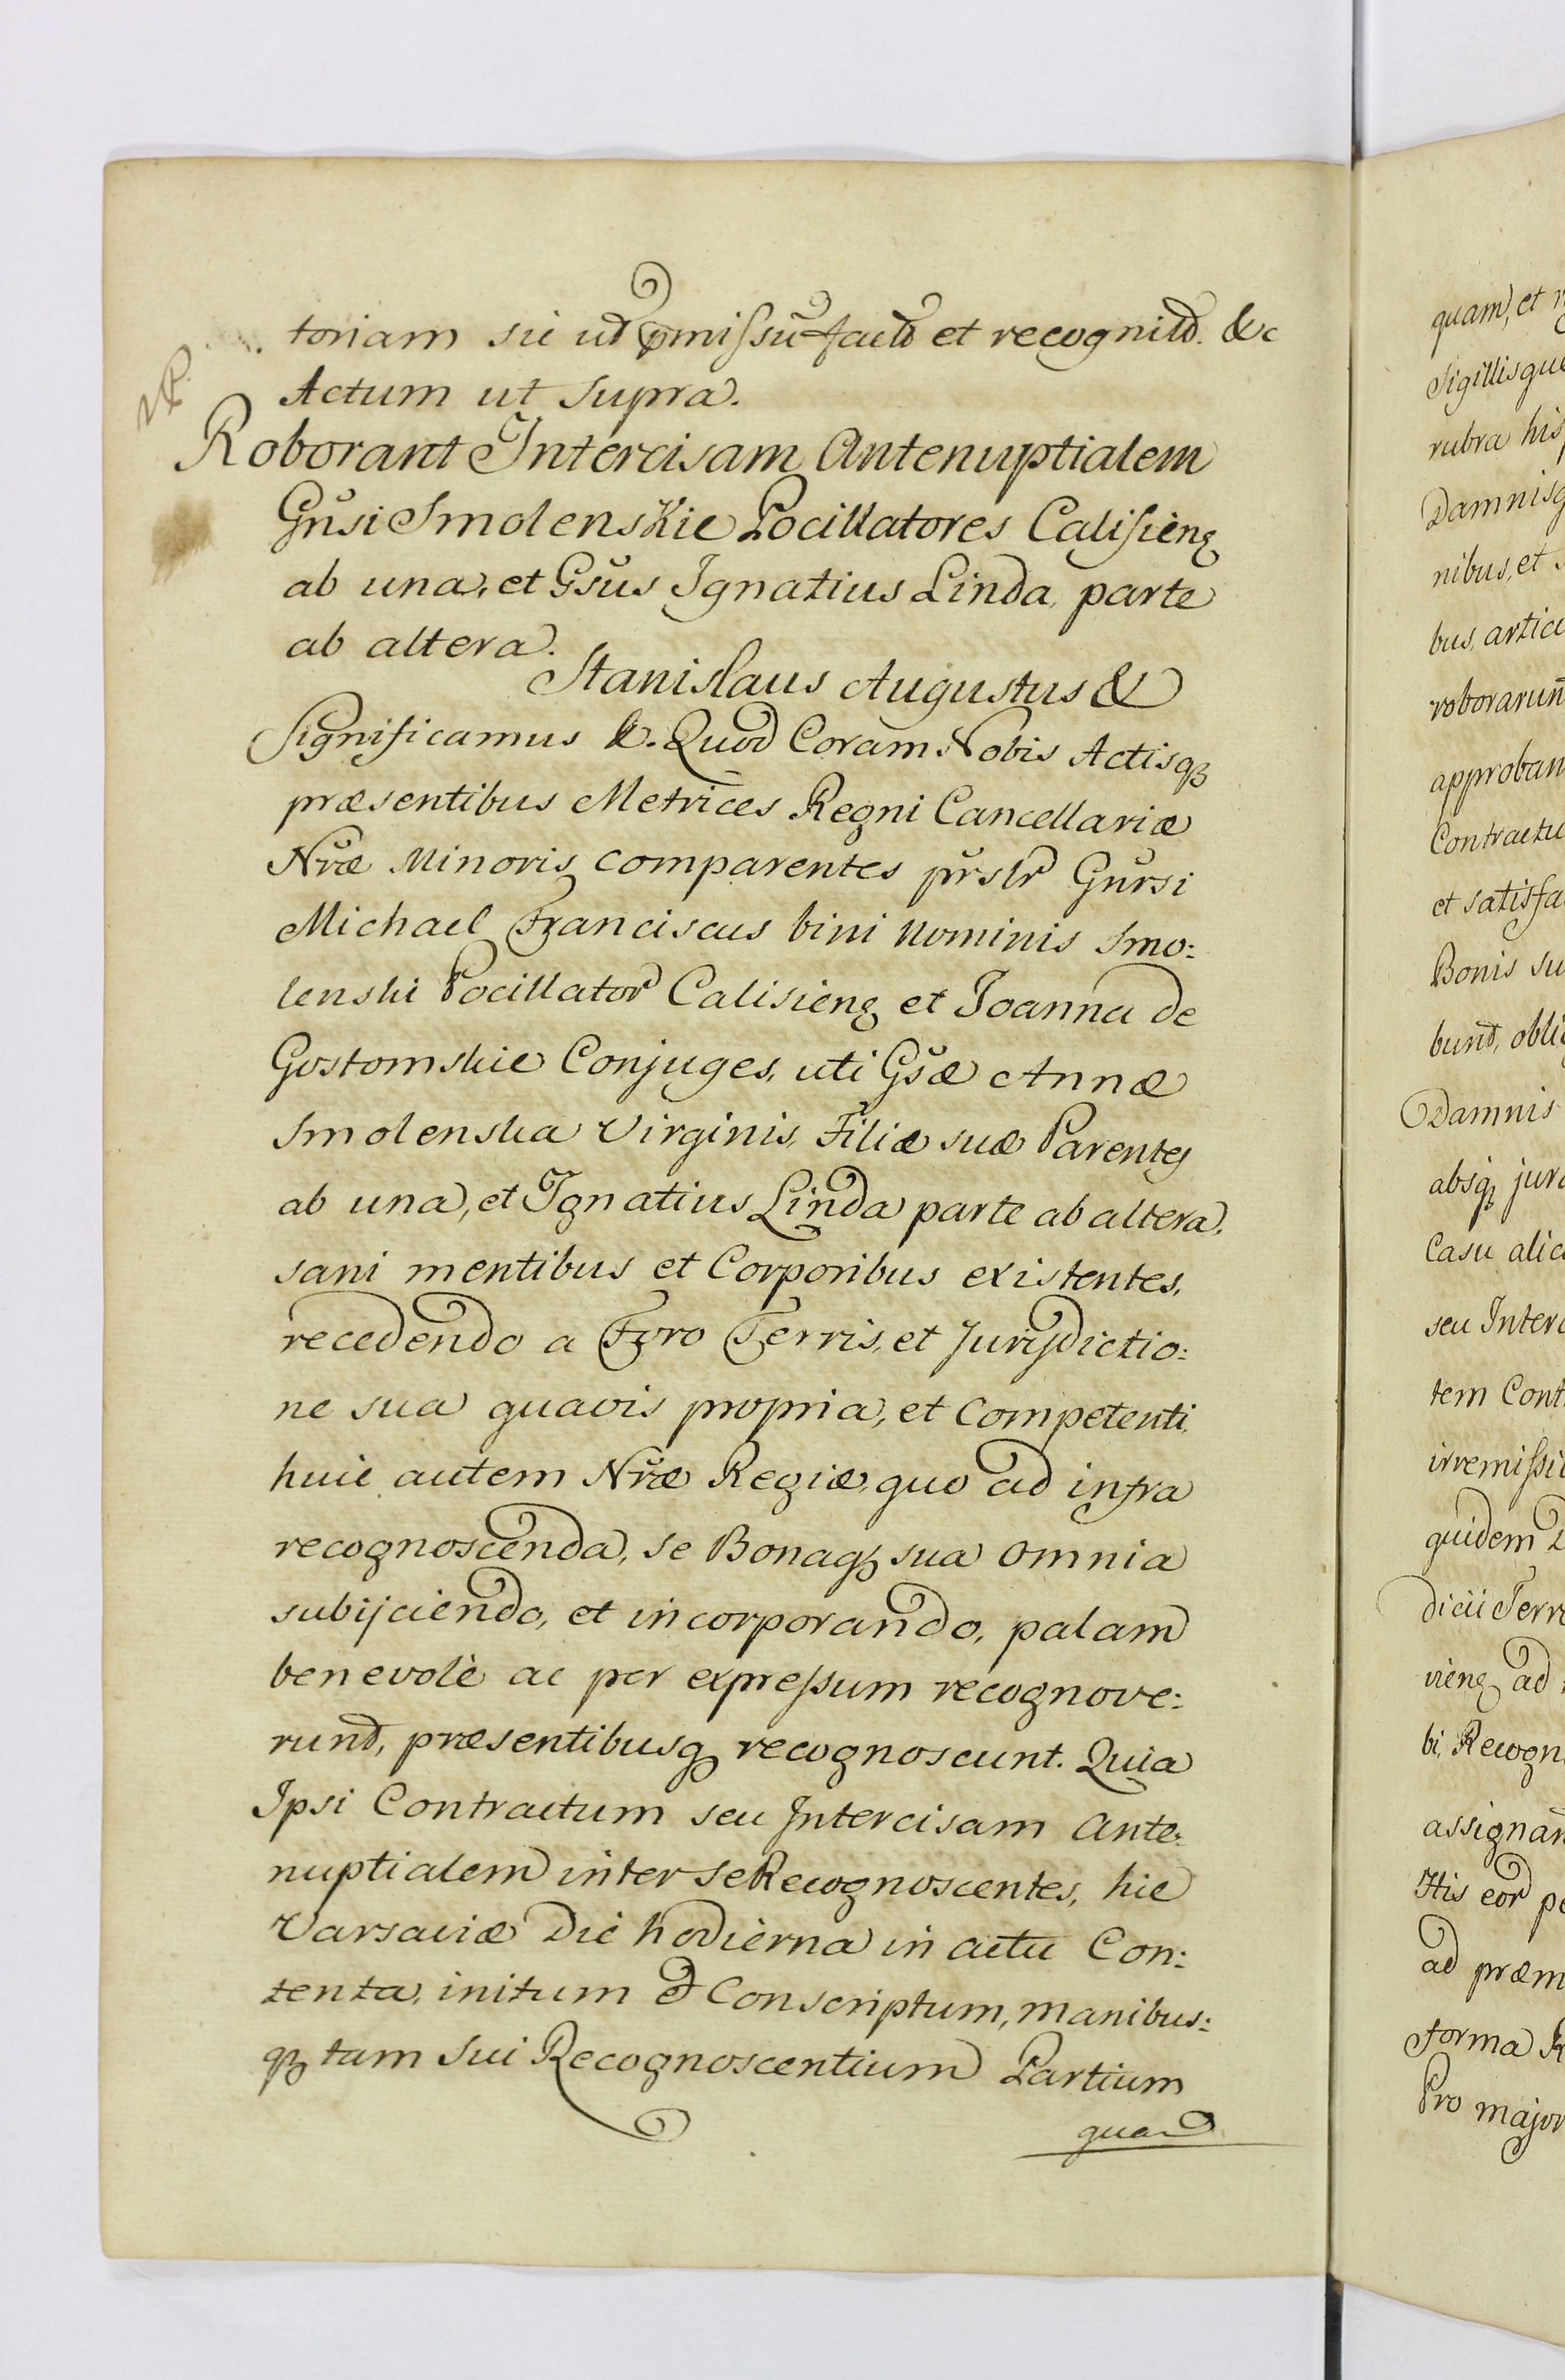 toriam sic ut pmissũ facto et recognito. &c
Actum ut supra.
Roborant Intercisam Antenuptialem
Gñsi Smolenskie Pocillatores Calisieng
ab una, et Gsũs Ignatius Linda parte
ab altera.
Stanislaus Augustus &
Significamus &. Quod Coram Nobis Actisq
præsentibus Metrices Regni Cancellariæ
Nræ Minoris comparentes prslr Gnrsi
Michael Franciscus bini nominis Smo:
lenski Pocillator Calisieng et Joanna de
Gostomskie Conjuges, uti Gsæ Annæ
Smolenska Virginis, Filiæ suæ Parentes
ab una, et Ignatius Linda parte ab altera,
sani mentibus et Corporibus existentes,
recedendo a Foro Terris, et Jurisdictio:
ne sua quavis propria, et Competenti,
huic autem Nræ Regiæ, quo ad infra
recognoscenda, se Bonaq sua omnia
subijciendo, et incorporando, palam
benevolè ac per expressum recognove:
runt, præsentibusq recognoscunt. Quia
Ipsi Contractum seu Intercisam Ante:
nuptialem inter se Recognoscentes, hic
Varsaviæ Die hodierna in actu Con:
tenta, initum et Conscriptum, manibus:
q tam Sui Recognoscentium Partium
quam
quam, et
Sigillisque
rubra his
Damnisq
nibus, et
bus, artic
roborarunt
approban
Contractu
et satisfa
Bonis su
bunt, obli
Damnis
absq jur
Casu alic
seu Inter
tem Cont
irremissi
quidem
dicii Terr
vieng ad
bi, Recogn
assignan
His eor pe
ad præm
forma R
Pro major